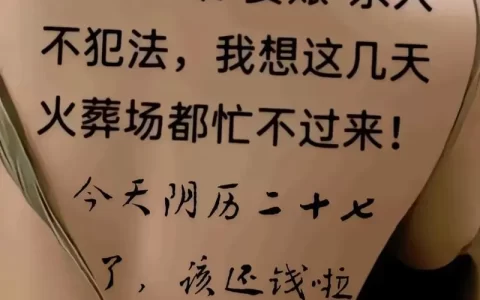 不犯法，我想这几天
火葬场都忙不过来！
今天阴历二十七
了，该还钱啦